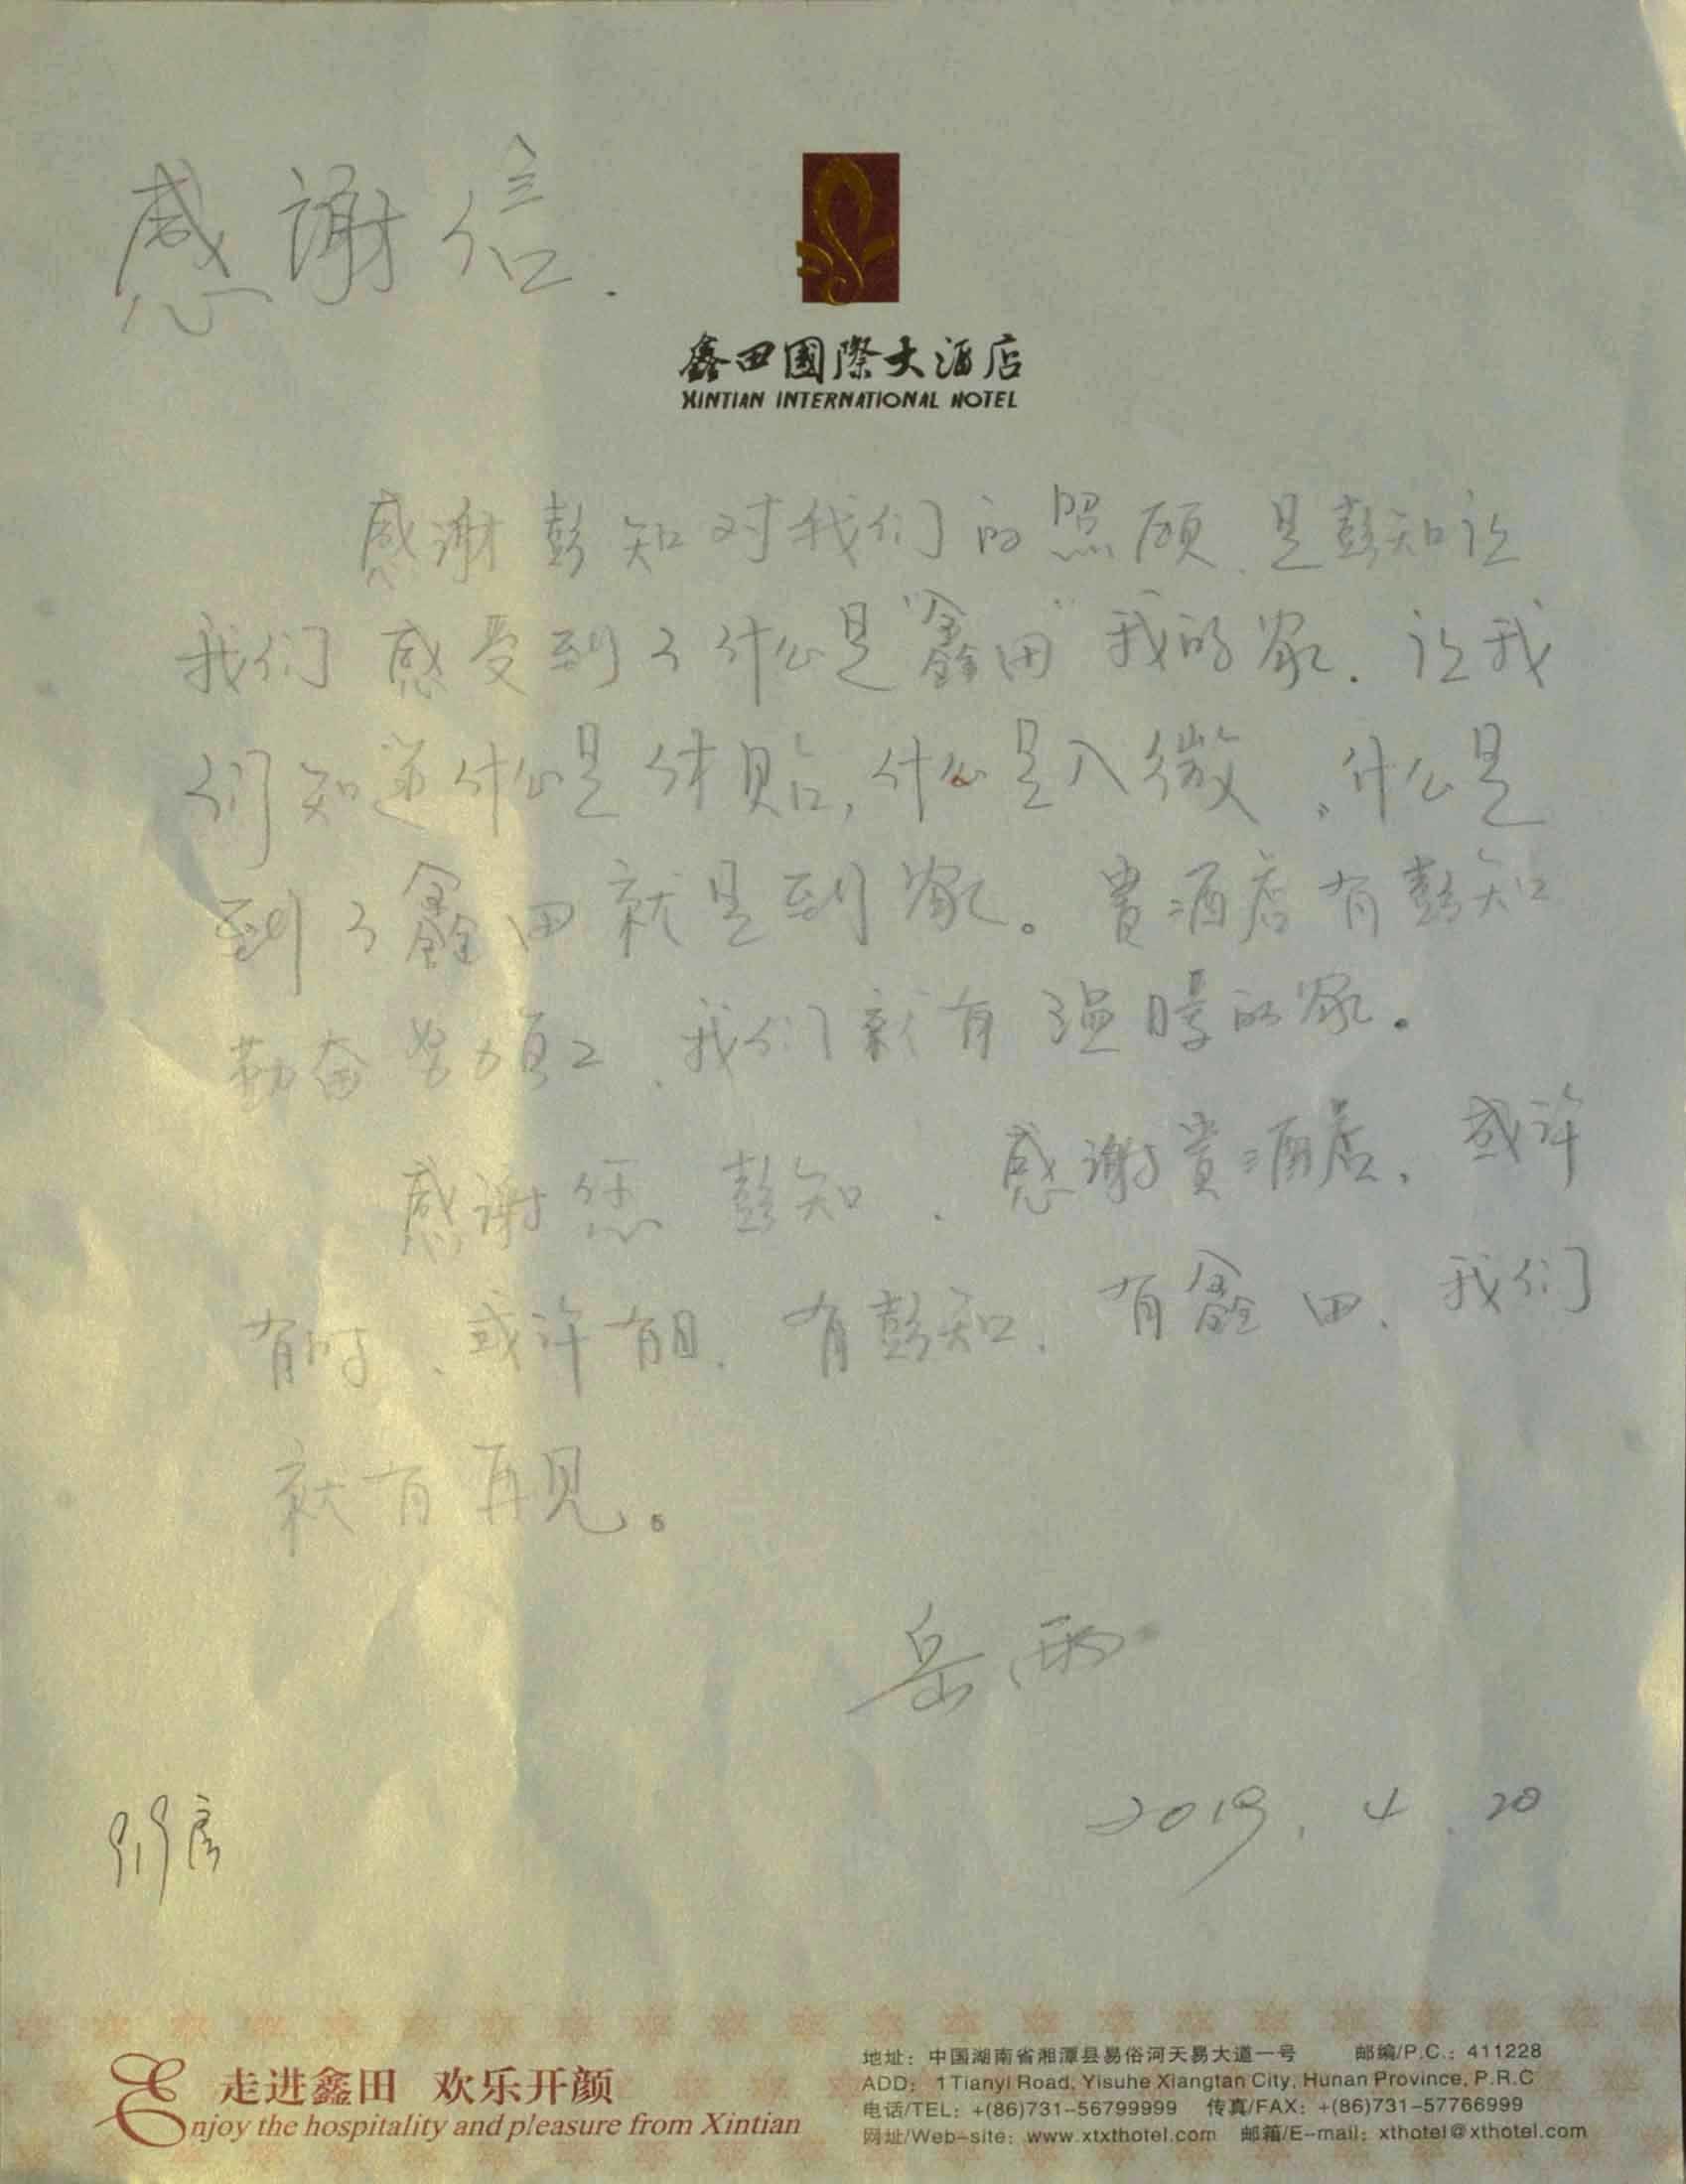 感谢信.
鑫田國際大酒店
XINTIAN INTERNATIONAL HOTEL
感谢彭知对我们的照顾、是彭知让
我们感受到了什么是“鑫田”我的家.让我
们知道什么是体贴,什么是入微、什么是
到了鑫田就是到家。贵酒店有彭知
勤奋努力员工、我们就有温暖的家。
感谢您彭知、感谢贵酒店、或许
有时、或许有日、有彭知、有鑫田、我们
就有再见。
岳雨
2019.4.20
房
走进鑫田 欢乐开颜
Enjoy the hospitality and pleasure from Xintian
地址：中国湖南省湘潭县易俗河天易大道一号 邮编/P.C.：411228
ADD：1Tianyi Road, Yisuhe Xiangtan City, Hunan Province, P.R.C
电话/TEL：+(86)731-56799999 传真/FAX：+(86)731-57766999
网址/Web-site：www.xtxthotel.com 邮箱/E-mail：xthotel@xthotel.com